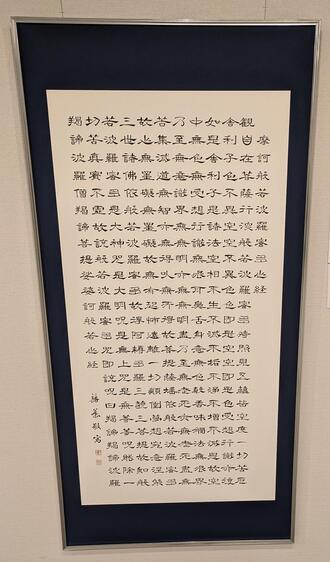 摩訶般若波羅蜜多心経
觀自在菩薩行深般若波羅蜜多時照見五蘊皆空度一切苦厄
舍利子色不異空空不異色色即是空空即是色受想行識亦復
如是舍利子是諸法空相不生不滅不垢不淨不增不減是故空
中無色無受想行識無眼耳鼻舌身意無色聲香味觸法無眼界
乃至無意識界無無明亦無無明盡乃至無老死亦無老死盡無
苦集滅道無智亦無得以無所得故菩提薩埵依般若波羅蜜多
故心無罣礙無罣礙故無有恐怖遠離一切顛倒夢想究竟涅槃
三世諸佛依般若波羅蜜多故得阿耨多羅三藐三菩提故知般
若波羅蜜多是大神咒是大明咒是無上咒是無等等咒能除一
切苦真實不虛故說般若波羅蜜多咒即說咒曰羯諦羯諦波羅
羯諦波羅僧羯諦菩提娑婆訶般若心経